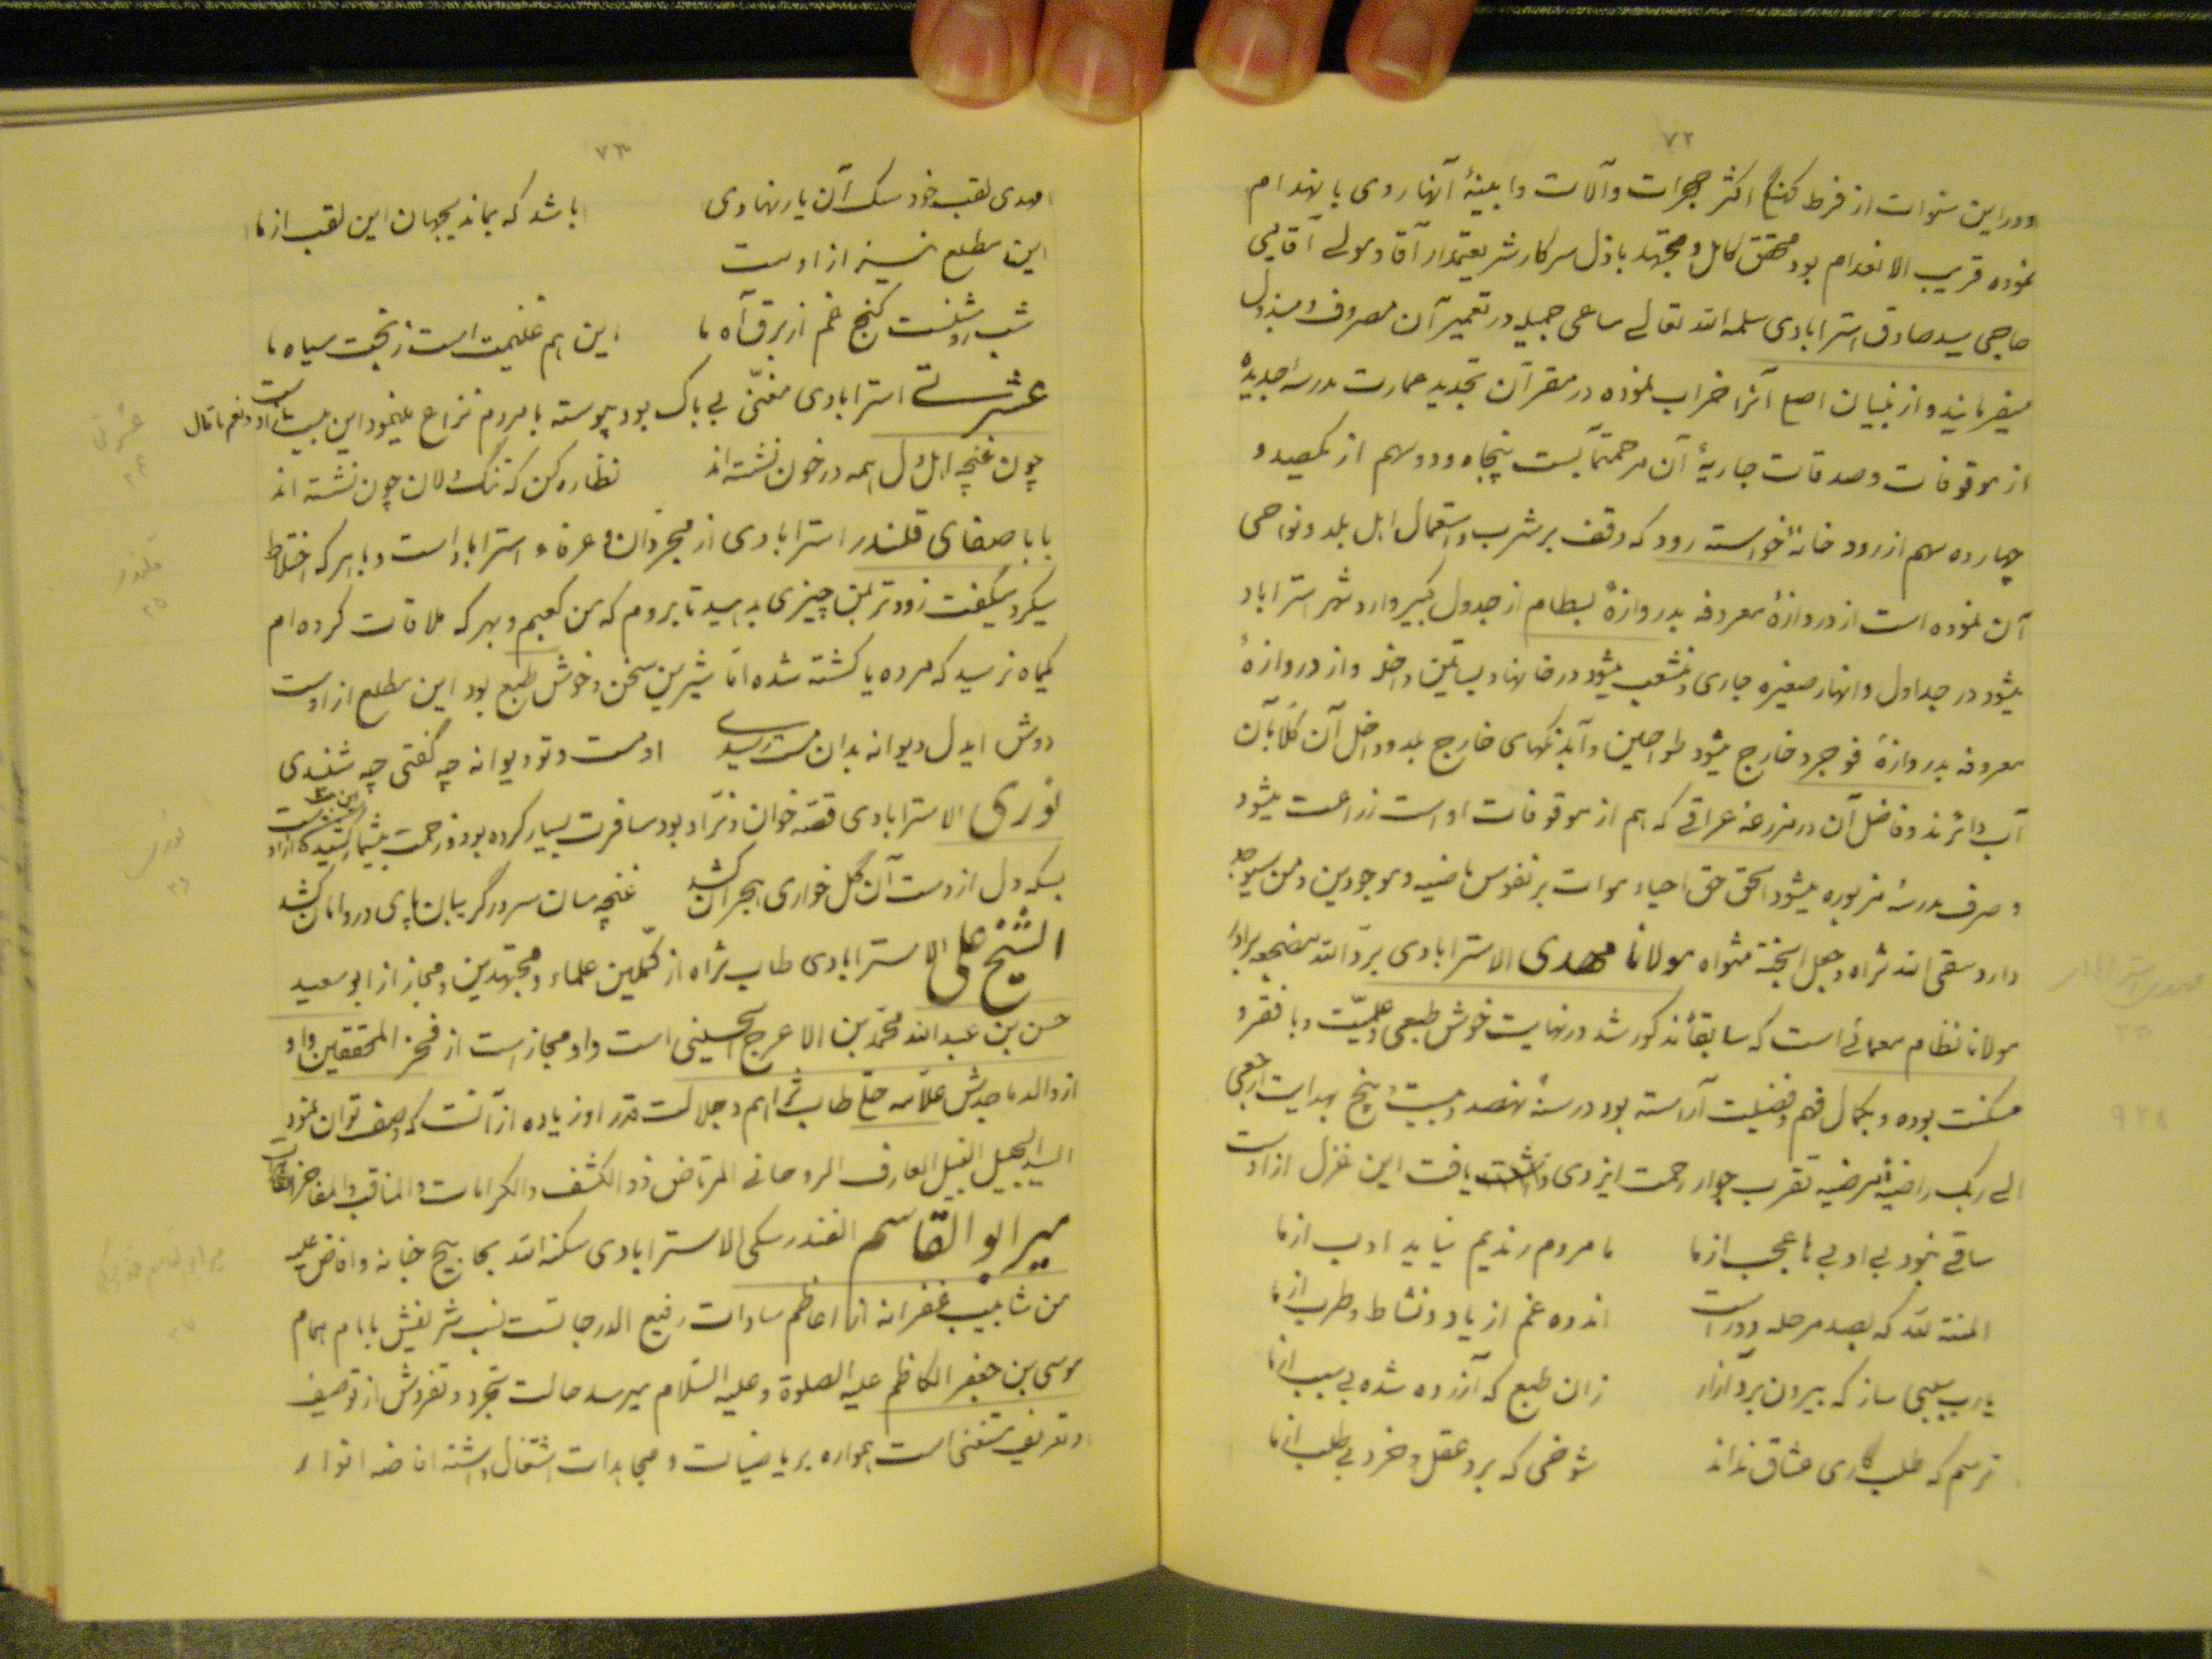 ٧٢
ودر این سنوات از فرط کهنگی اکثر حجرات و آلات و ابنیهٔ آنها روی بانهدام
نموده قریب الانعدام بود محقق کامل و مجتهد باذل سرکار شریعتمدار آقا و مولی آقایی
حاجی سید صادق استرابادی سلمه الله تعالی مساعی جمیله در تعمیر آن مصروف و مبذول
میفرمایند و از بنیان اصل آنرا خراب نموده در مقر آن تجدید عمارت مدرسهٔ جدیده
از موقوفات و صدقات جاریهٔ آن مرحمتمآبست پنجاه و دو سهم از یکصد و
چهارده سهم از رود خانهٔ خواسته رود که وقف بر شرب و استعمال اهل بلد و نواحی
آن نموده است از دروازهٔ معروفه بدروازهٔ بسطام از جدول کبیر وارد شهر استراباد
میشود در جداول و انهار صغیره جاری و منشعب میشود در خانها و بساتین داخله و از دروازهٔ
معروفه بدروازهٔ فوجرد خارج میشود طواحین و آبدنگهای خارج بلد و داخل آن کلاً بآن
آب دائرند و فاضل آن در مزرعهٔ عراقی که هم از موقوفات اوست زراعت میشود
و صرف مدرسهٔ مزبوره میشود الحق حق احیاء موات بر نفوس ماضیه و موجودین و من سیوجد
دارد سقی الله ثراه و جعل الجنة مثواه مولانا مهدی الاسترابادی برّد الله مضجعه برادر
مولانا نظام معمائی است که سابقاً مذکور شد در نهایت خوش طبعی و علمیّت و با فقر و
مسکنت بوده و بکمال فهم و فضیلت آراسته بود در سنهٔ نهصد و بیست و پنج بهدایت ارجعی
الی ربک راضیة مرضیه تقرب جوار رحمت ایزدی یافت این غزل از اوست
ساقی نبود بی ادبی ها عجب از ما ما مردم رندیم نیاید ادب از ما
المنة لله که بصد مرحله دور است اندوه غم از یاد و نشاط و طرب از ما
یارب سببی ساز که بیرون برد آزار زان طبع که آزرده شده بی سبب از ما
ترسم که طلب کاری عشاق نداند شوخی که برد عقل و خرد بی طلب از ما
٧٣
مهدی لقب خود سک آن یار نهادی باشد که بماند بجهان این لقب از ما
این مطلع نیز از اوست
شب روشنست کنج غم از برق آه ما این هم غنیمت است ز بخت سیاه ما
عشرتی استرابادی مغنّی بی باک بود پیوسته با مردم نزاع مینمود این بیت از اوست
چون غنچه اهل دل همه در خون نشسته اند نظاره کن که تنگ دلان چون نشسته اند
بابا صفای قلندر استرابادی از مجردان و عرفاء استراباد است و با هر که اختلاط
میکرد میگفت زودتر بمن چیزی بدهید تا بروم که من کعبم و بهر که ملاقات کرده ام
بیکماه نرسید که مرده یا کشته شده امّا شیرین سخن و خوش طبع بود این مطلع از اوست
دوش ایدل دیوانه بدان مست رسیدی او مست و تو دیوانه چه گفتی چه شنیدی
نوری الاسترابادی قصّه خوان و نرّاد بود مسافرت بسیار کرده بود و زحمت بیشمار کشیده
بسکه دل از دست آن گل خواری هجران کشد غنچه سان سر در گریبان پای در دامان کشد
الشیخ علی الاسترابادی طاب ثراه از کمّلین علماء و مجتهدین و مجاز از ابو سعید
حسن بن عبدالله محمّد بن الاعرج الحسینی است و او مجاز است از فخر المحققین و او
از والد ماجدش علّامه حلّی طاب ثراهم و جلالت قدر او زیاده از آنست که وصف توان نمود
السید الجلیل النبیل العارف الروحانی المرتاض ذو الکشف و الکرامات و المناقب و المفاخر
میر ابو القاسم الفندرسکی الاسترابادی سکنه الله بحابیح جنانه و افاض علیه
من شآبیب غفرانه از اعاظم سادات رفیع الدرجاتست نسب شریفش بامام همام
موسی بن جعفر الکاظم علیه الصلوة و علیه السّلام میرسد حالت تجرد و تفردش از توصیف
و تعریف مستغنی است همواره بریاضیات و مجاهدات اشتغال داشته افاضه انوار
عشرتی
٣٤
قلندر
٣٥
نوری
٣٦
میر ابو القاسم فندرسکی
٣٧
٩٢٥